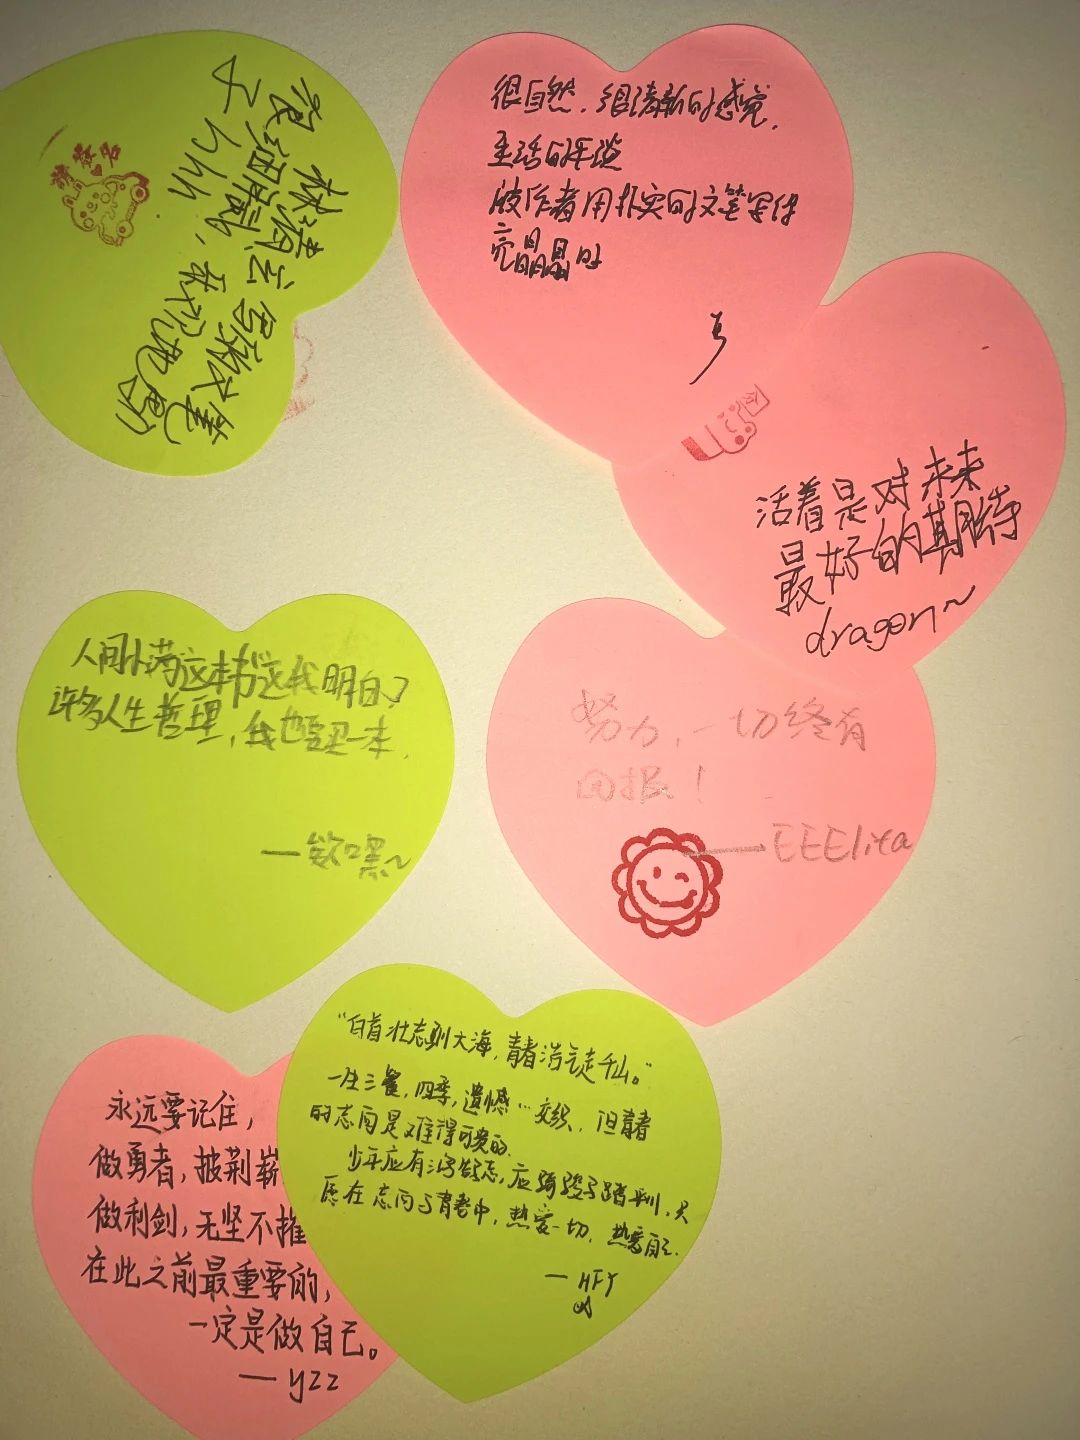 请签名
林清玄写散文笔
很细腻，我们也
hhh
很自然，很清新的感觉，
生活的
被作者用朴实的文笔写得
亮晶晶的
活着是对未来
最好的期待
dragon~
人间小满这本书让我明白了
许多人生哲理，我也要买一本．
—欸嘿~
努力，一切终有
回报！
——EEElita
“白首壮志驯大海，青春浩气走千山。”
一生三餐，四季，遗憾…交织，但青春
的志向是难得可贵的．
少年应有鸿鹄志，应骑骏马踏平川，只
愿在志向与青春中，热爱一切，热爱自己．
— HFY
永远要记住，
做勇者，披荆斩
做利剑，无坚不摧
在此之前最重要的，
一定是做自己。
— yzz